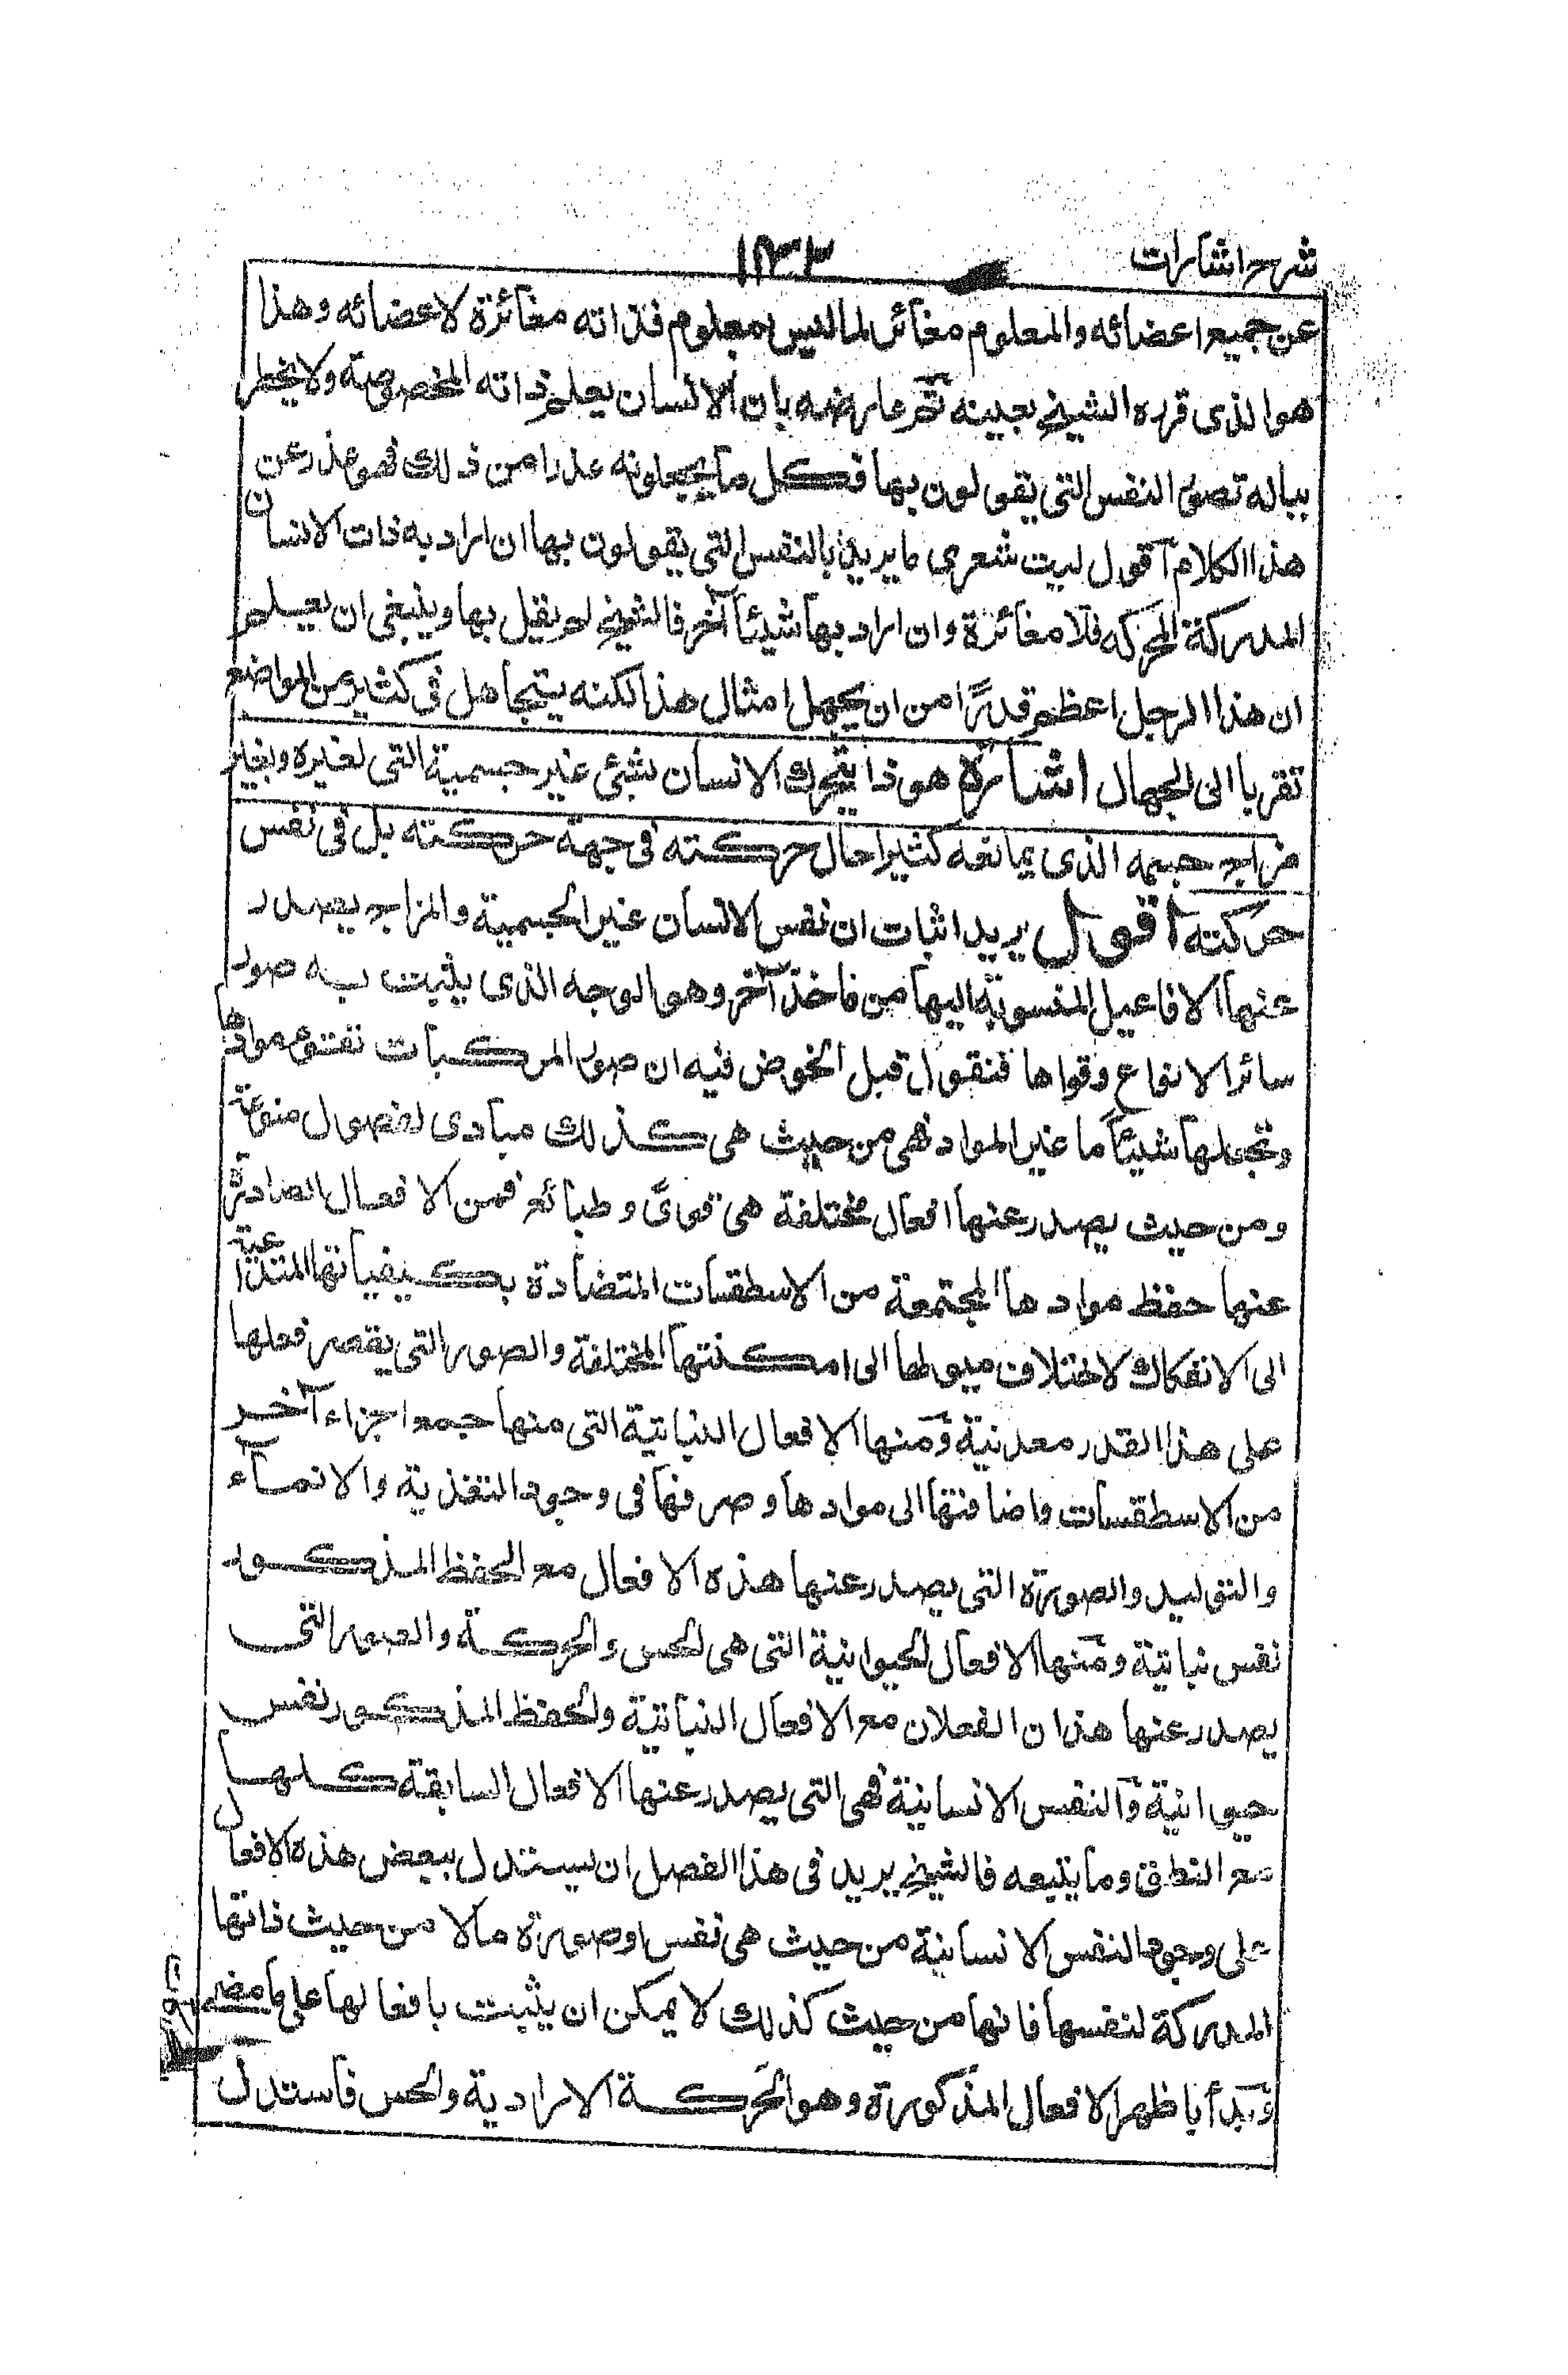 شرح اشارات
١٣٣
عن جميع اعضائه والمعلوم مغائر لما ليس بمعلوم فذاته مغائرة لاعضائه وهذا
هو الذى قرره الشيخ بعينه ثم عارضه بان الانسان يعلم ذاته المخصوصة ولا يخطر
بباله تصور النفس التى يقولون بها فكل ما يجعلونه عذرا من ذلك فهو عذر عن
هذا الكلام آقول ليت شعرى ما يريد بالنفس التى يقولون بها ان اراد به ذات الانسان
المدركة المحركه فلا مغائرة وان اراد بها شيئاً آخر فالشيخ لم يقل بها وينبغى ان يعلم
ان هذا الرجل اعظم قدرًا من ان يجهل امثال هذا لكنه يتجاهل فى كثير من المواضع
تقربا الى الجهال اشارة هو ذا يتحرك الانسان بشئ غير جسمية التى لغيره وبغير
مزاج جسمه الذى يمانعه كثيرا حال حركته فى جهة حركته بل فى نفس
حركته اقول يريد اثبات ان نفس الانسان غير الجسمية والمزاج يصدر
عنها الافاعيل المنسوبة اليها من ماخذ آخر وهو الوجه الذى يثبت به صور
سائر الانواع وقواها فنقول قبل الخوض فيه ان صور المركبات تقتوم موادها
وتجعلها شيئاً ما غير المواد فهى من حيث هى كذلك مبادى لفصول منوعة
ومن حيث يصدر عنها افعال مختلفة هى قوىً وطبائع فمن الافعال الصادرة
عنها حفظ موادها المجتمعة من الاسطقسات المتضادة بكيفياتها المتداعية
الى الانفكاك لاختلاف ميولها الى امكنتها المختلفة والصور التى يقصر فعلها
على هذا القدر معدنية ومنها الافعال النباتية التى منها جمع اجزاء آخر
من الاسطقسات واضافتها الى موادها وصرفها فى وجوه التغذية والانماء
والتوليد والصورة التى يصدر عنها هذه الافعال مع الحفظ المذكور
نفس نباتية ومنها الافعال الحيوانية التى هى الحس والحركة والصور التى
يصدر عنها هذان الفعلان مع الافعال النباتية والحفظ المذكور نفس
حيوانية والنفس الانسانية فهى التى يصدر عنها الافعال السابقة كلها
مع النطق وما يتبعه فالشيخ يريد فى هذا الفصل ان يستدل ببعض هذه الافعال
على وجود النفس الانسانية من حيث هى نفس او صورة ما لا من حيث ذاتها
المدركة لنفسها فانها من حيث كذلك لا يمكن ان يثبت بافعالها على ما مضى
فبدأ باظهر الافعال المذكورة وهو الحركة الارادية والحس فاستدل